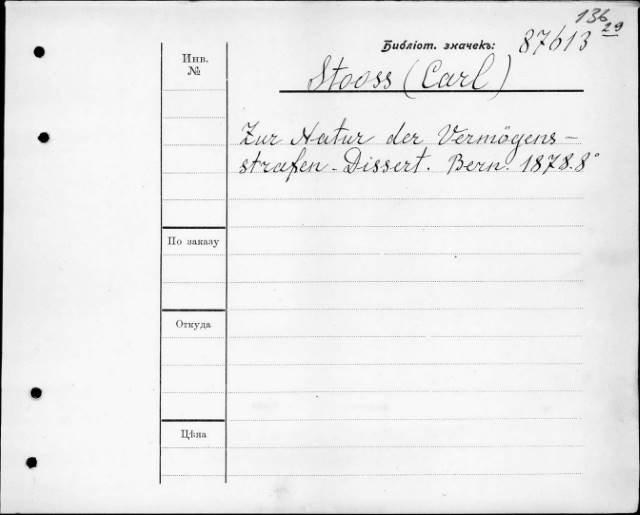 136
29
Библіот. значекъ: 87613
Инв.
№
Stooss (Carl)
Zur Natur der Vermögens-
strafen - Dissert. Bern. 1878. 8°
По заказу
Откуда
Цѣна